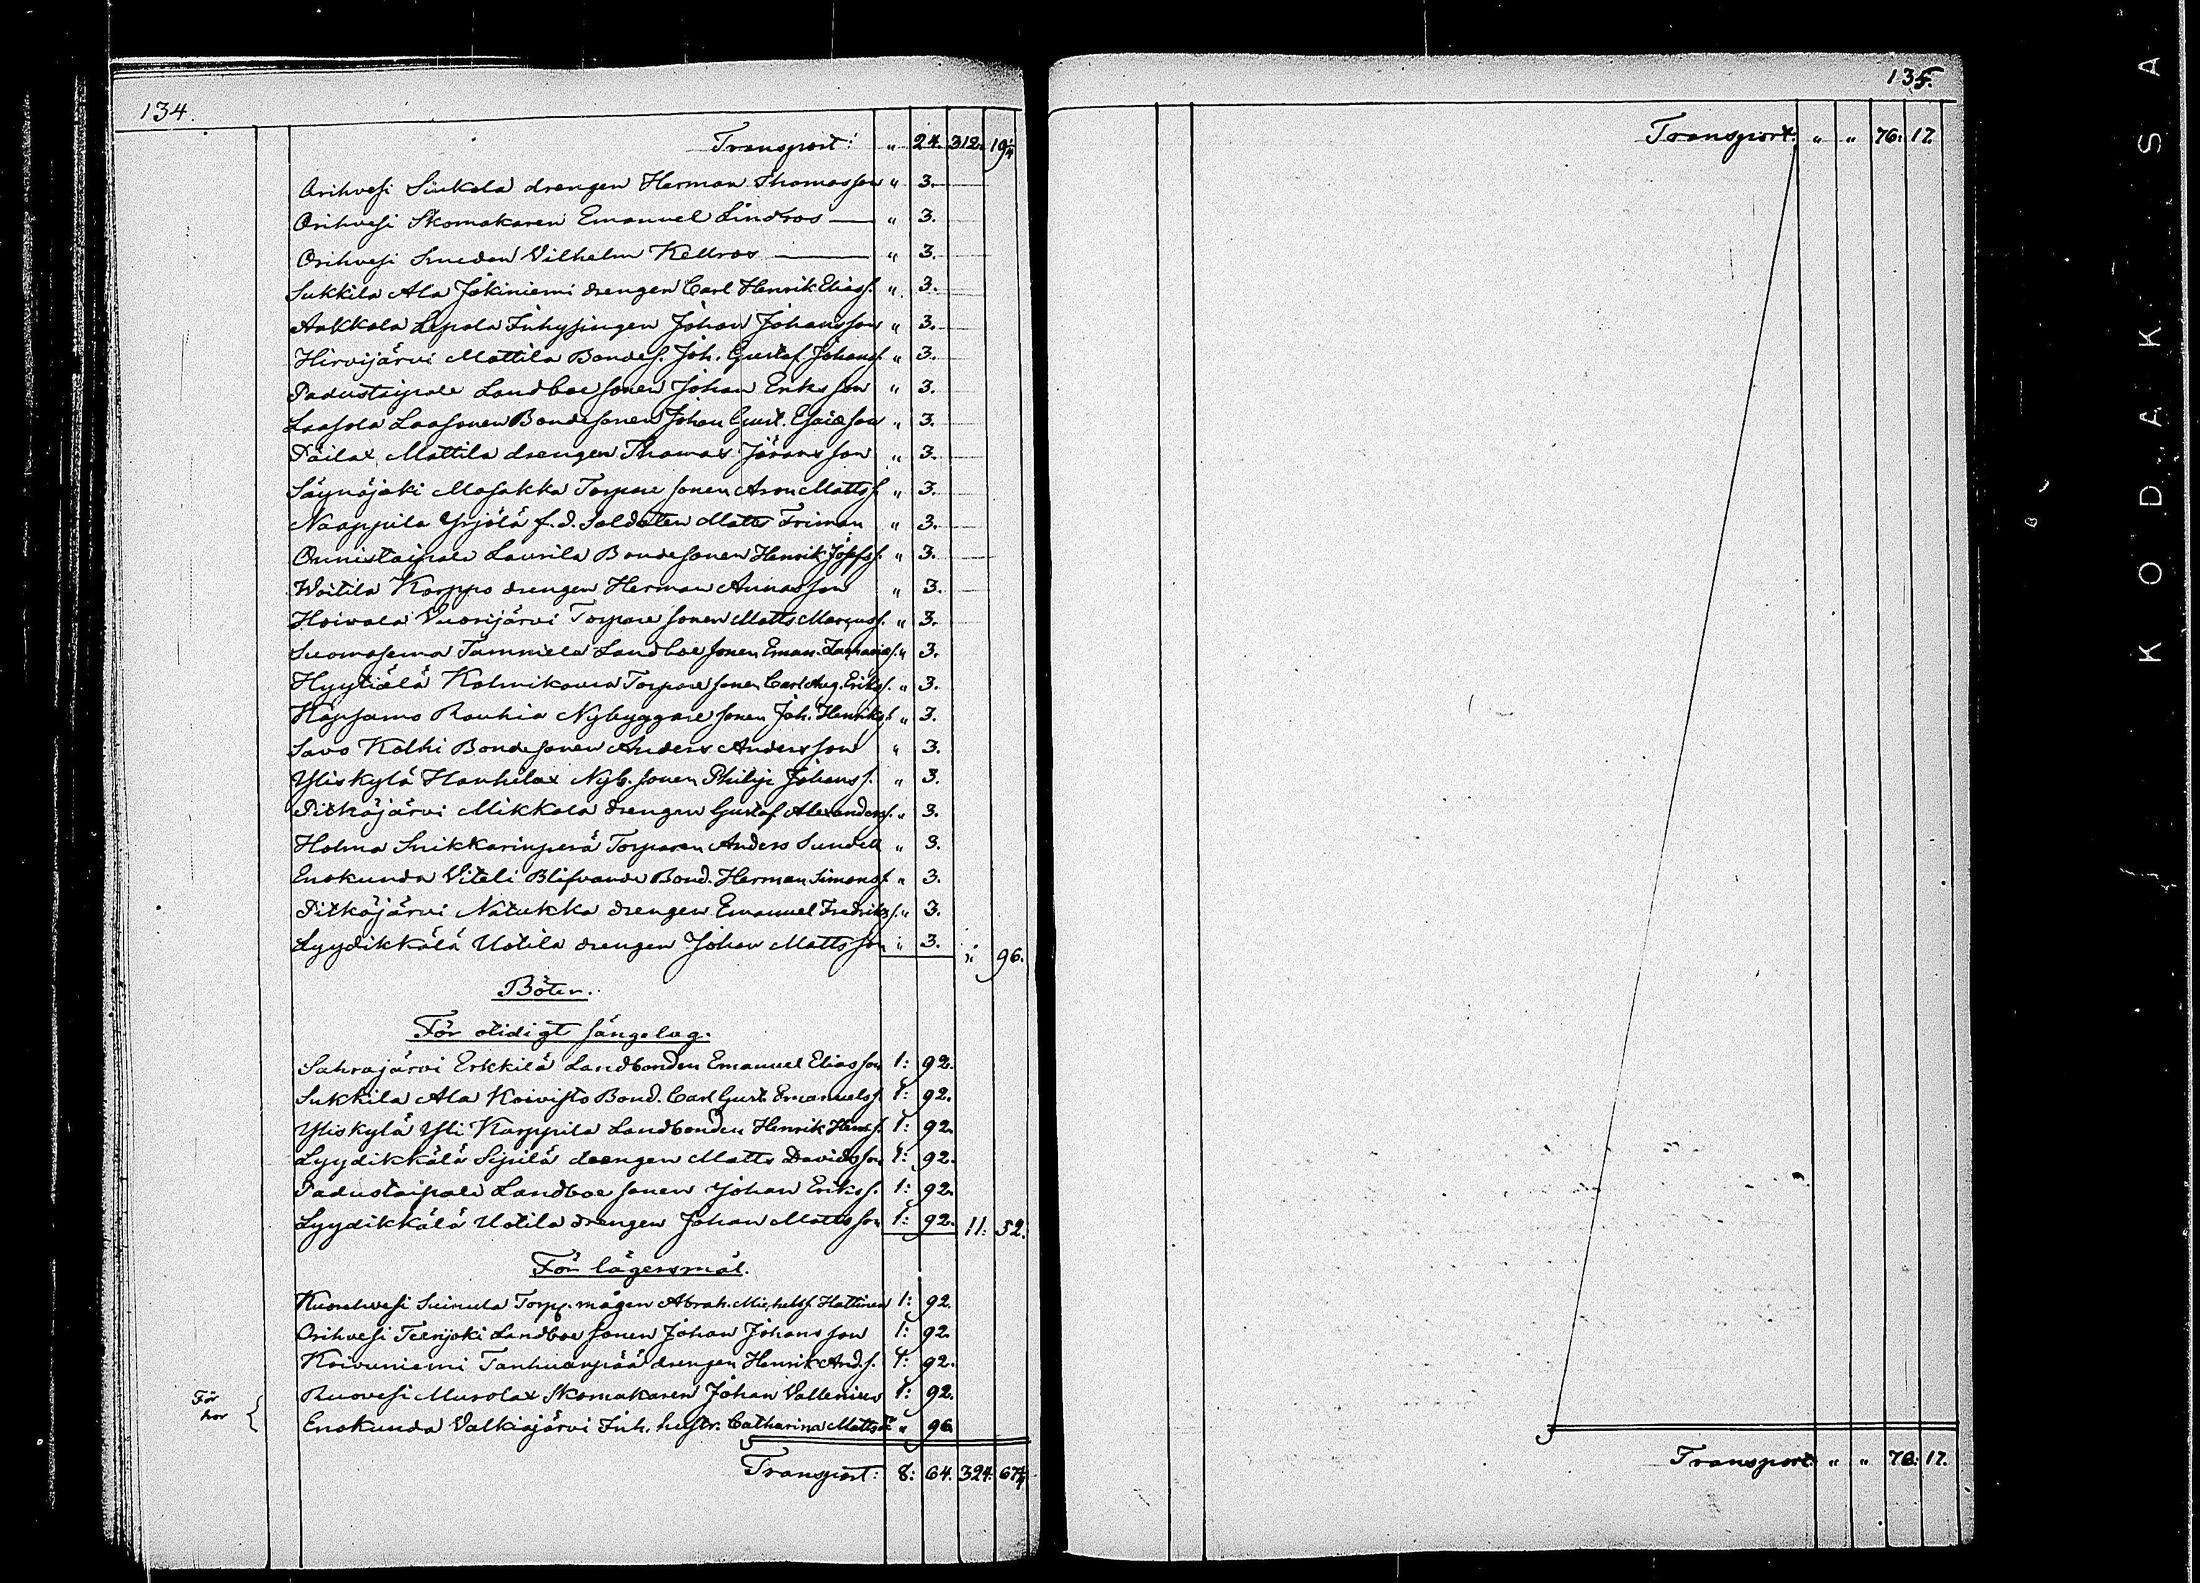 134.
Transport: " 24. 312. 19 1/4
Orihvesi Siukola drengen Herman Thomasson " 3.
Orihvesi Skomakaren Emanuel Lindros " 3.
Orihvesi Smeden Vilhelm Kellros " 3.
Sukkila Ala Jokiniemi drengen Carl Henrik Elias s. " 3.
Aakkola Lepola Inhysingen Johan Johansson " 3.
Hirvijärvi Mattila Bondes. Joh. Gustaf Johans s. " 3.
Padustaipale Landboe sonen Johan Eriksson " 3.
Laasola Laasonen Bondesonen Johan Gust. Esaiæson " 3.
Päilax Mattila drengen Thomas Jöransson " 3.
Säynäjoki Masakka Torpare sonen Aron Matts s. " 3.
Naappila Yrjölä f.d. Soldaten Matts Friman " 3.
Onnistaipale Laurila Bondesonen Henrik Josefs s. " 3.
Woitila Korppo drengen Herman Annasson " 3.
Hoivala Vuorijärvi Torpare sonen Matts Marcus s. " 3.
Suomasema Tammela Landboe sonen Eman. Zacharias s. " 3.
Hyytiälä Kolmikanna Torpare sonen Carl Aug. Eriks s. " 3.
Häpsamo Rouhia Nybyggare sonen Joh. Henriks s. " 3.
Savo Kolhi Bondesonen Anders Andersson " 3.
Yliskylä Hanhilax Nyb. sonen Philip Johans s. " 3.
Pitkäjärvi Mikkola drengen Gustaf Alexanders s. " 3.
Holma Snikkarinperä Torparen Anders Sundell " 3.
Enokunda Viteli Blifvande Bond. Herman Simons s. " 3.
Pitkäjärvi Natukka drengen Emanuel Fredriks s. " 3.
Lyydikkälä Uotila drengen Johan Mattsson " 3. " 96.
Böter.
För otidigt sängelag.
Sahrajärvi Erkkilä Landbonden Emanuel Eliasson 1: 92.
Sukkila Ala Koivisto Bond. Carl Gust. Emanuels s. 1: 92.
Yliskylä Yli Karppila Landbonden Henrik Henr. s. 1: 92.
Lyydikkälä Sipilä drengen Matts Davidsson 1: 92.
Padustaipale Landboe sonen Johan Eriks s. 1: 92.
Lyydikkälä Uotila drengen Johan Mattsson 1: 92. 11: 52.
För lägersmål.
Kuorehvesi Suinula Torp. mågen Abrah. Michels s. Hattinen 1: 92.
Orihvesi Teerijoki Landboe sonen Johan Johansson 1: 92.
Koivuniemi Tanhuanpää drengen Henrik And. s. 1: 92.
För hor { Ruovesi Murolax Skomakaren Johan Vallenius 1: 92.
Enokunda Valkiajärvi Inh. hustr. Catharina Matts dr " 96.
Transport: 8: 64. 324: 67 1/4
135.
Transport: " " 76: 17.
Transport: " " 76: 17.